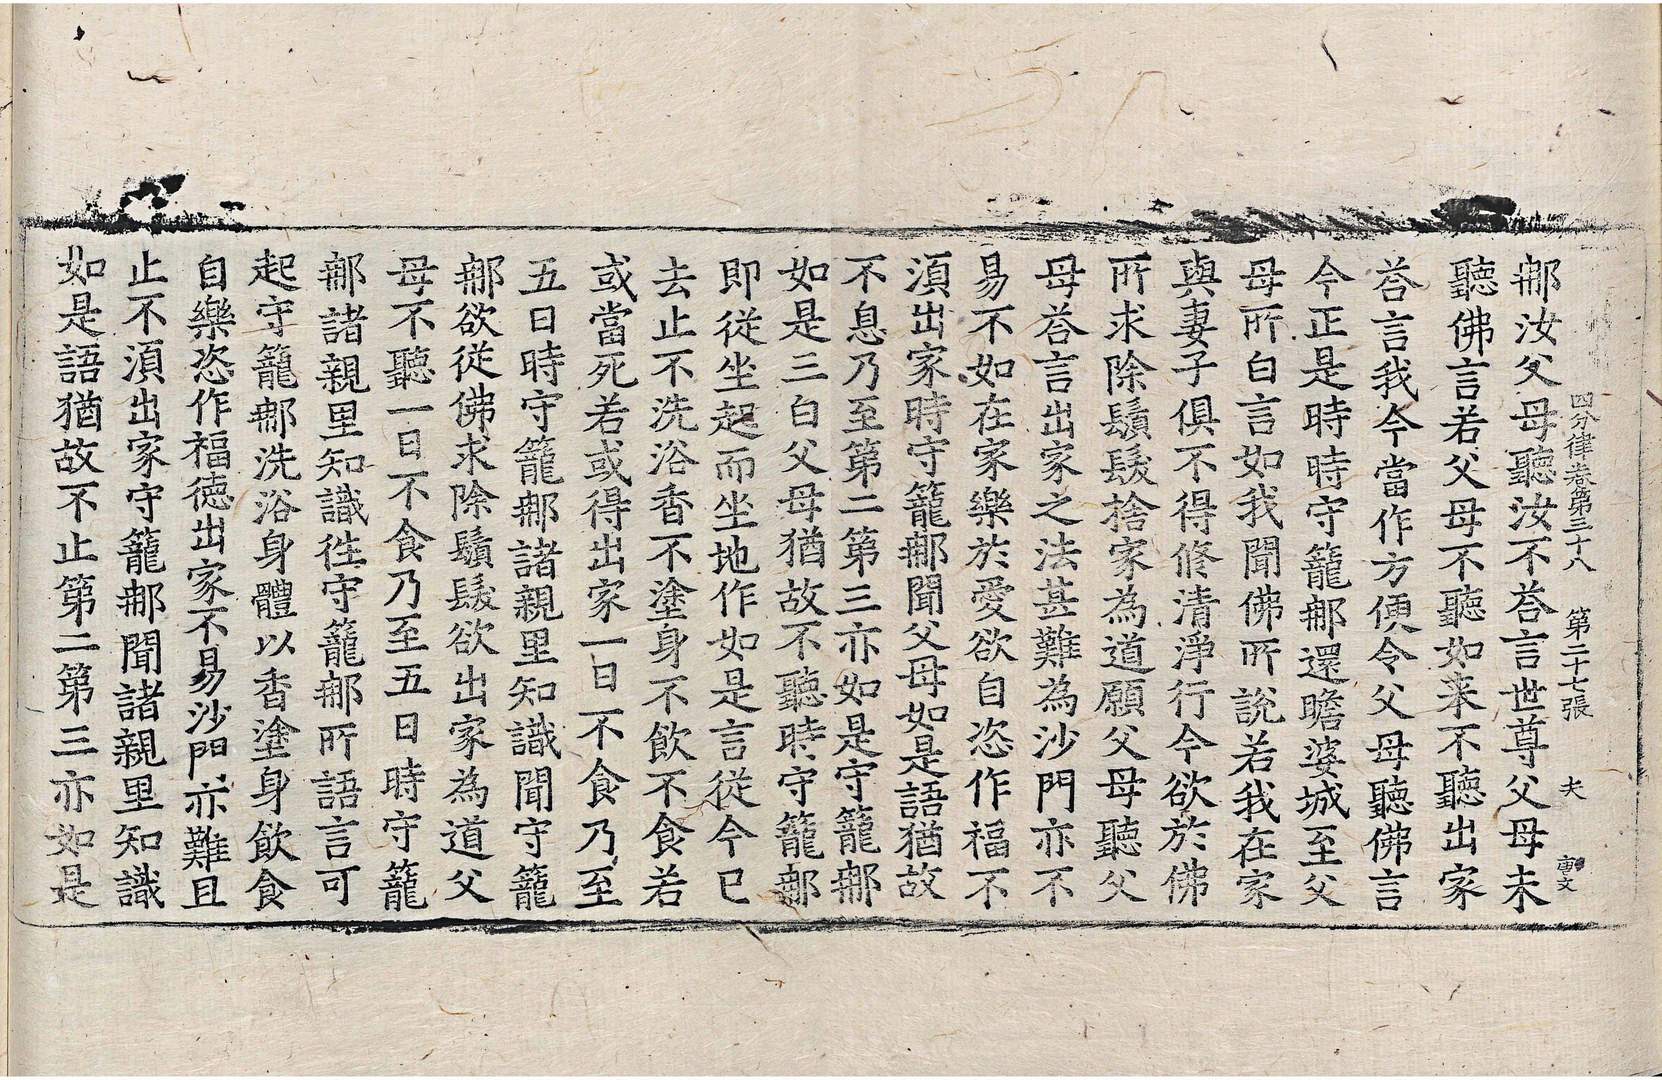 四分律卷第三十八 第二十七張 夫
䣛汝父母聽汝不荅言世尊父母未
聽佛言若父母不聽如来不聽出家
荅言我今當作方便令父母聽佛言
今正是時時守籠䣛還瞻婆城至父
母所白言如我聞佛所說若我在家
與妻子俱不得修清淨行今欲於佛
所求除鬚髮捨家為道願父母聽父
母荅言出家之法甚難為沙門亦不
易不如在家樂於愛欲自恣作福不
湏出家時守籠䣛聞父母如是語猶故
不息乃至第二第三亦如是守籠䣛
如是三白父母猶故不聽時守籠䣛
即從坐起而坐地作如是言從今已
去止不洗浴香不塗身不飲不食若
或當死若或得出家一日不食乃至
五日時守籠䣛諸親里知識聞守籠
䣛欲從佛求除鬚髮欲出家為道父
母不聽一日不食乃至五日時守籠
䣛諸親里知識徃守籠䣛所語言可
起守籠䣛洗浴身體以香塗身飲食
自樂恣作福德出家不易沙門亦難且
止不湏出家守籠䣛聞諸親里知識
如是語猶故不止第二第三亦如是